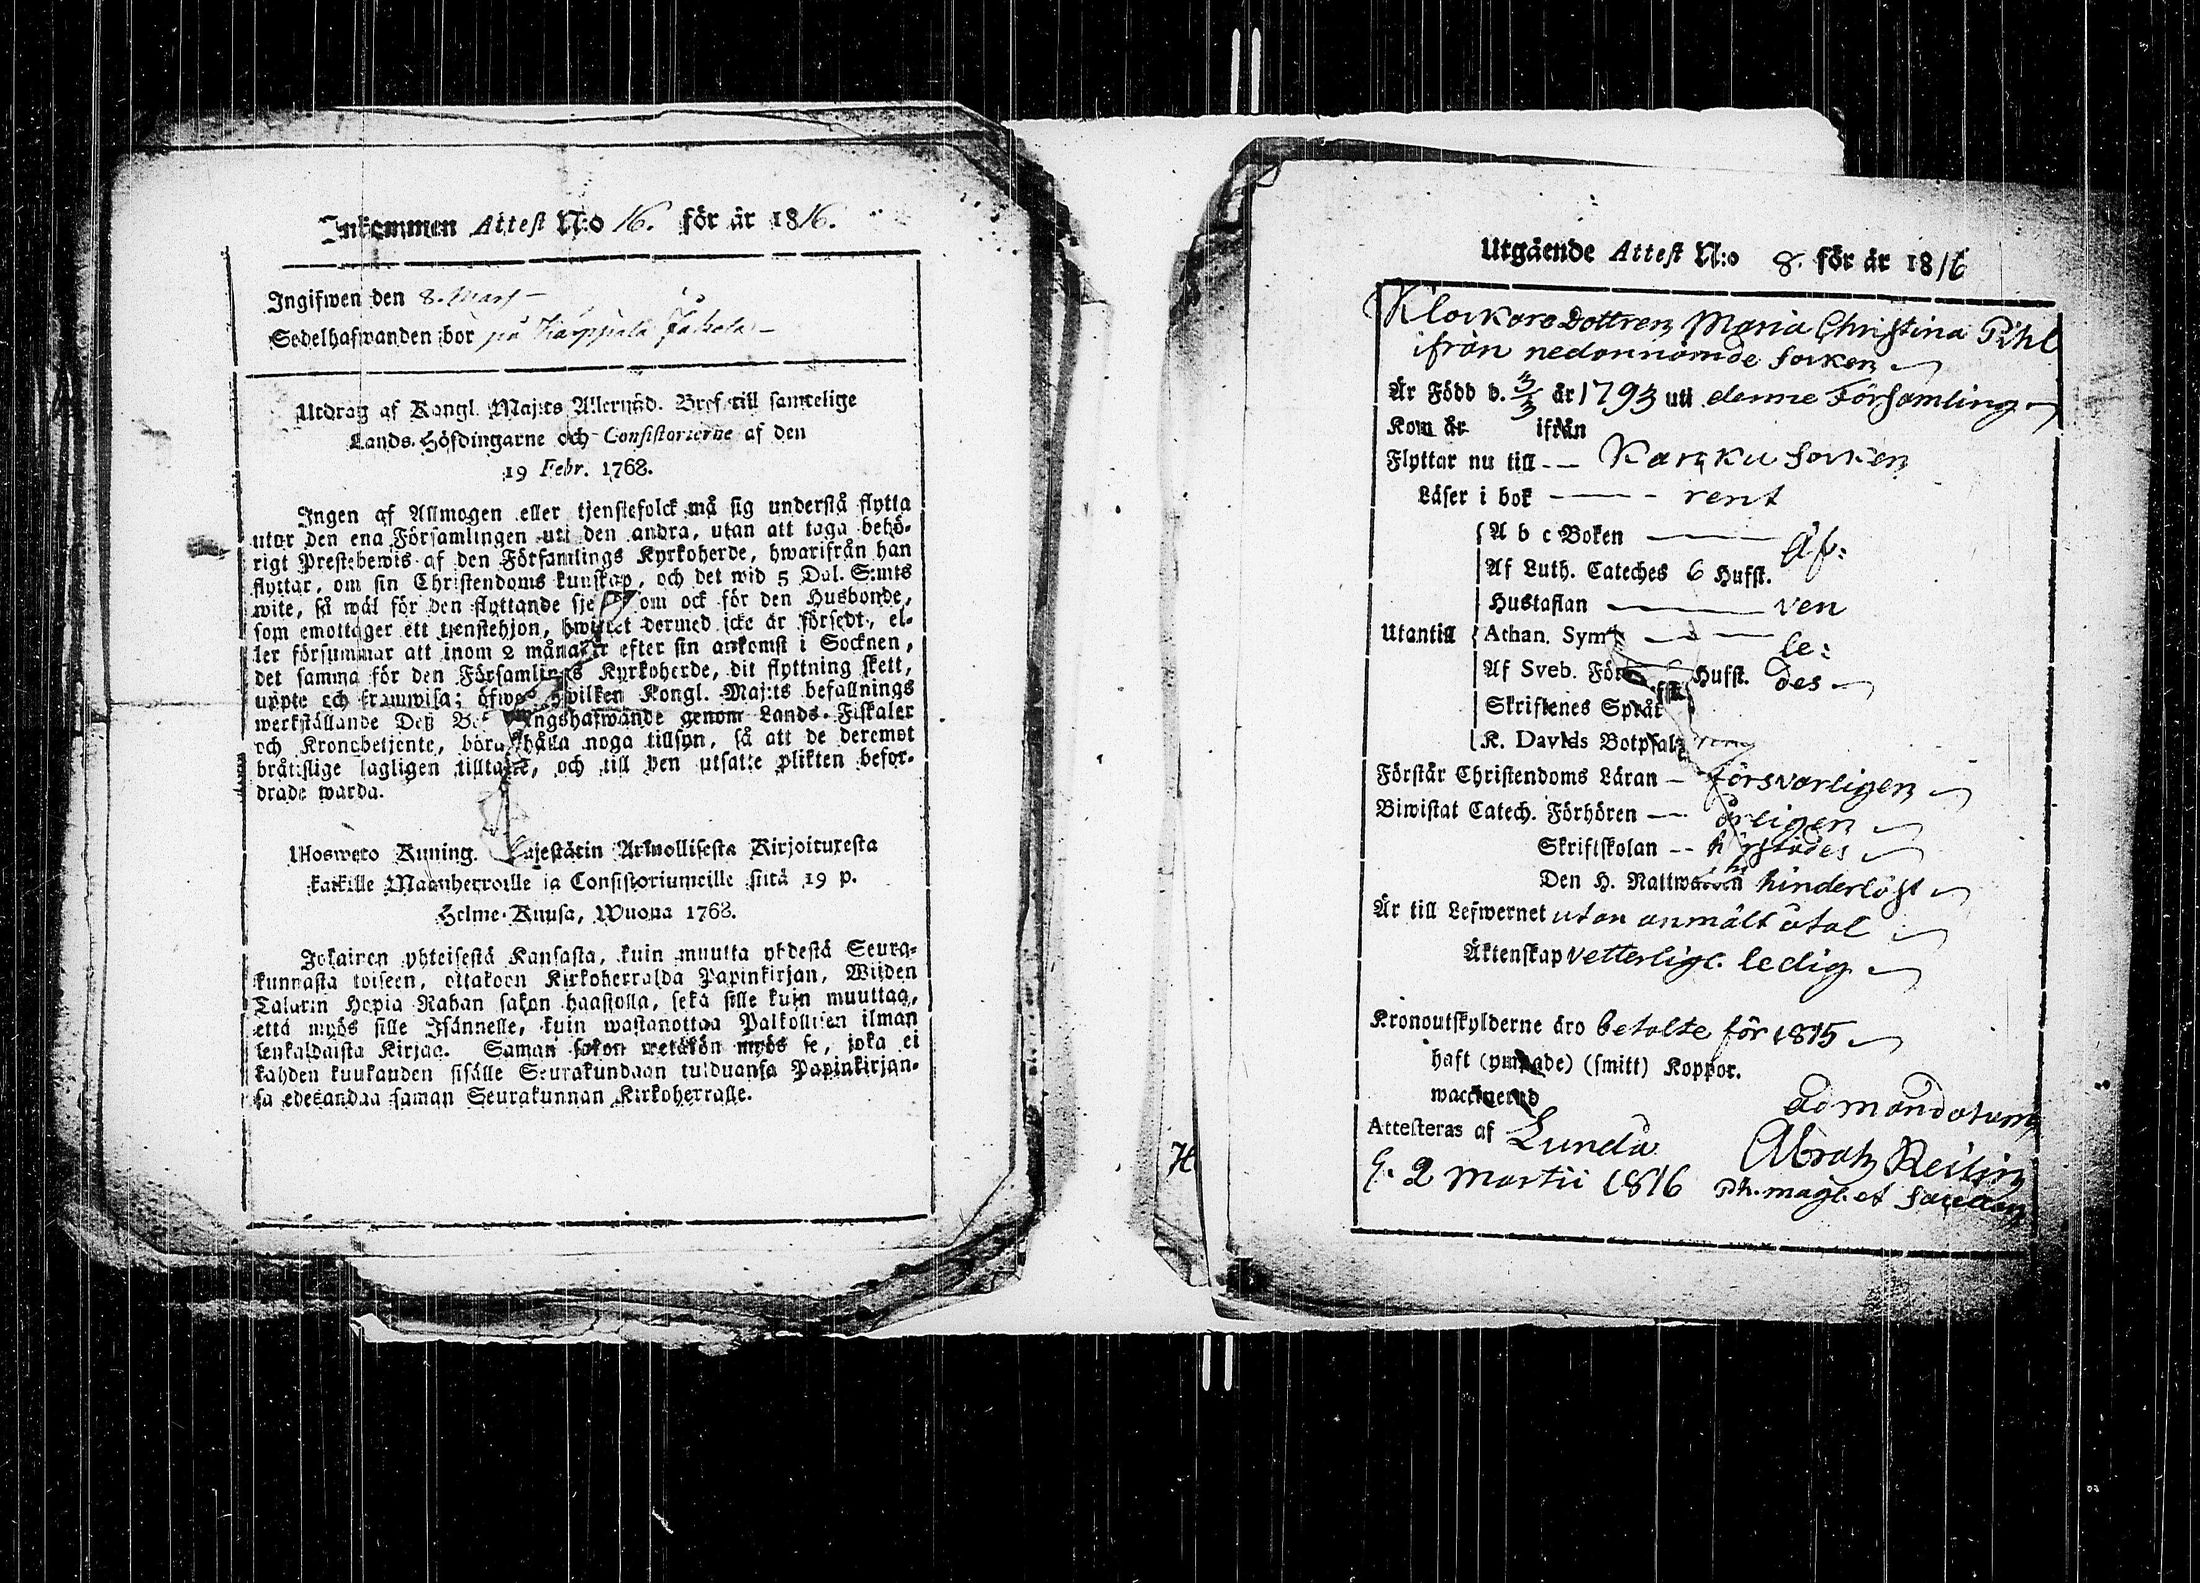 Inkommen Attest N:o 16. för år 1816.
Ingifwen den 8. Mars
Sedelhafwanden bor på Karppala
Utdrag af Kongl. Maj:ts Allernåd. Bref till samtelige
Lands-Höfdingarne och Consistorierne af den
19 Febr. 1768.
Ingen af Allmogen eller tjenstefolck må sig understå flytta
utur den ena Församlingen uti den andra, utan att taga behö-
rigt Prestebewis af den Församlings Kyrkoherde, hwarifrån han
flyttar, om sin Christendoms kunskap, och det wid 5 Dal. S:mts
wite, så wäl för den flyttande sje om ock för den Husbonde,
som emottager ett tjenstehjon, hwilket dermed icke är försedt, el-
ler försummar att inom 2 månader efter sin ankomst i Socknen,
det samma för den Församlings Kyrkoherde, dit flyttning skett,
uppte och framwisa; öfwer hvilken Kongl. Maj:ts befallnings
werkställande Deß Be ngshafwande genom Lands-Fiskaler
och Kronobetjente, böra hålla noga tillsyn, så att de deremot
bråtslige lagligen tilltalte, och till den utsatte plikten befor-
drade warda.
Ulosweto Kuning. Majestätin Armollisesta Kirjoituxesta
kaikille Maanherroille ja Consistoriumeille siitä 19 p.
Helme-Kuusa, Wuona 1768.
Jokainen yhteisestä Kansasta, kuin muutta yhdestä Seura-
kunnasta toiseen, ottakoon Kirkoherralda Papinkirjan, Wiiden
Talarin Hopia Rahan sakon haastolla, sekä sille kuin muuttaa,
että myös sille Isännelle, kuin wastanottaa Palkollisen ilman
senkaldaista Kirjaa. Saman sakon wetäkön myös se, joka ei
kahden kuukauden sisälle Seurakundaan tulduansa Papinkirjan-
sa edesandaa saman Seurakunnan Kirkoherralle.
Utgående Attest N:o 8. för år 1816
Klockare Dottren Maria Christina Pihl
ifrån nedannämde socken
Är Född d. 3/3 år 1793 uti denne Församling
Kom år ifrån
Flyttar nu till Karku socken
Läser i bok rent
Utantill
A b c Boken
Af Luth. Cateches 6 Hufst. äf:
Hustaflan ven
Athan. Symb le:
Af Sveb. För Hufst. des
Skriftenes Språk
K. Davids Botpsalm
Förstår Christendoms Läran försvarligen
Biwistat Catech. Förhören årligen
Skriftskolan härstädes
Den H. Nattwarden hinderlöst
Är till Lefwernet utan anmält åtal
Äktenskap vetterligt. ledig
Kronoutskylderne äro betalte för 1815
haft (ympade) (smitt) Koppor.
waccinerad
Attesteras af Lunda ad mandatum
d. 2 Martii 1816 Abrah Reilin
Ph. mag. et Sacellan
H